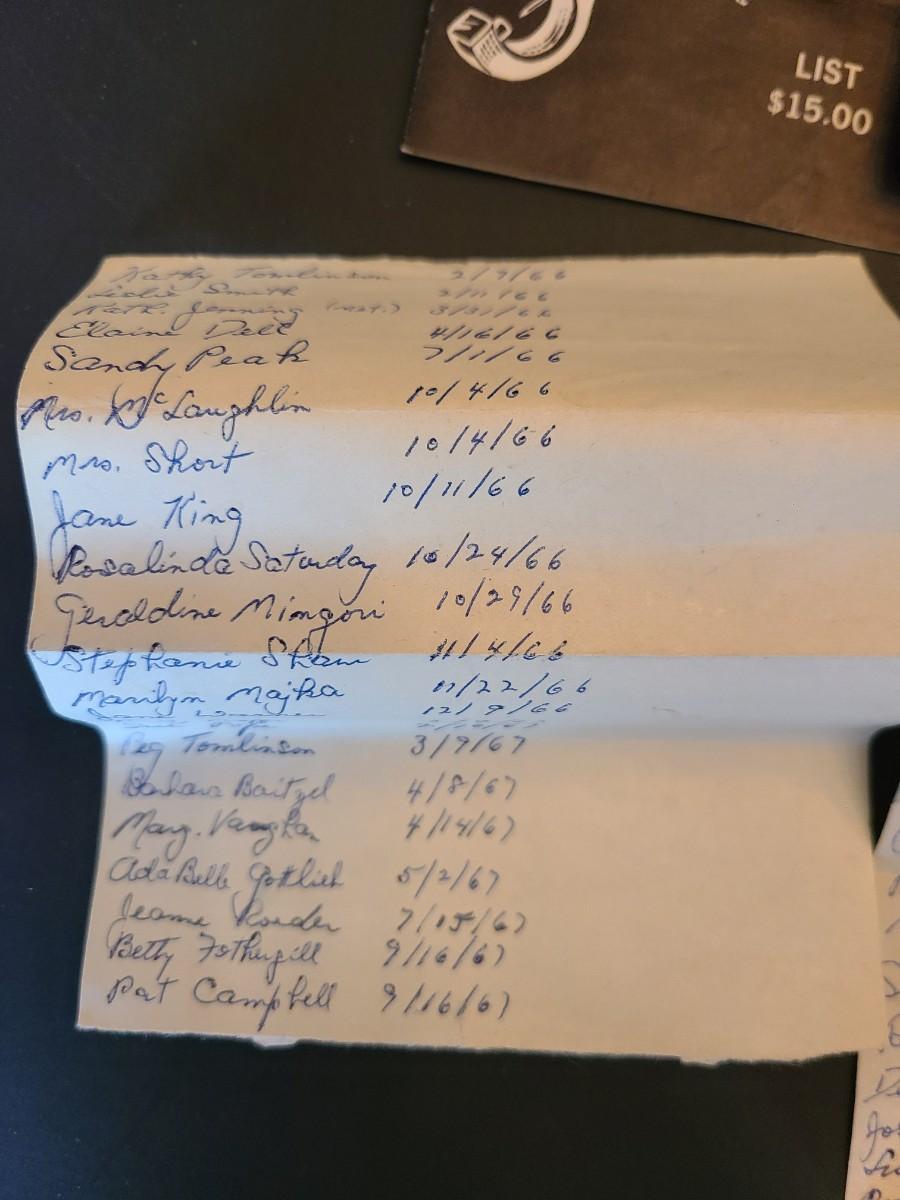 LIST
$15.00
Kathy Tomlinson 2/9/66
Leslie Smith 2/11/66
Kath. Jenning 3/31/66
Elaine Dell 4/16/66
Sandy Peak 7/1/66
Mrs. McLaughlin 10/4/66
Mrs. Short 10/4/66
Jane King 10/11/66
Rosalinda Saturday 10/24/66
Geraldine Mingori 10/29/66
Stephanie Shaw 11/4/66
Marilyn Majka 11/22/66
12/9/66
Peg Tomlinson 3/9/67
Barbara Baitzel 4/8/67
Marg. Vaughan 4/14/67
Ada Belle Gottlieb 5/2/67
Jeanne 7/15/67
Betty Fothergill 9/16/67
Pat Campbell 9/16/67